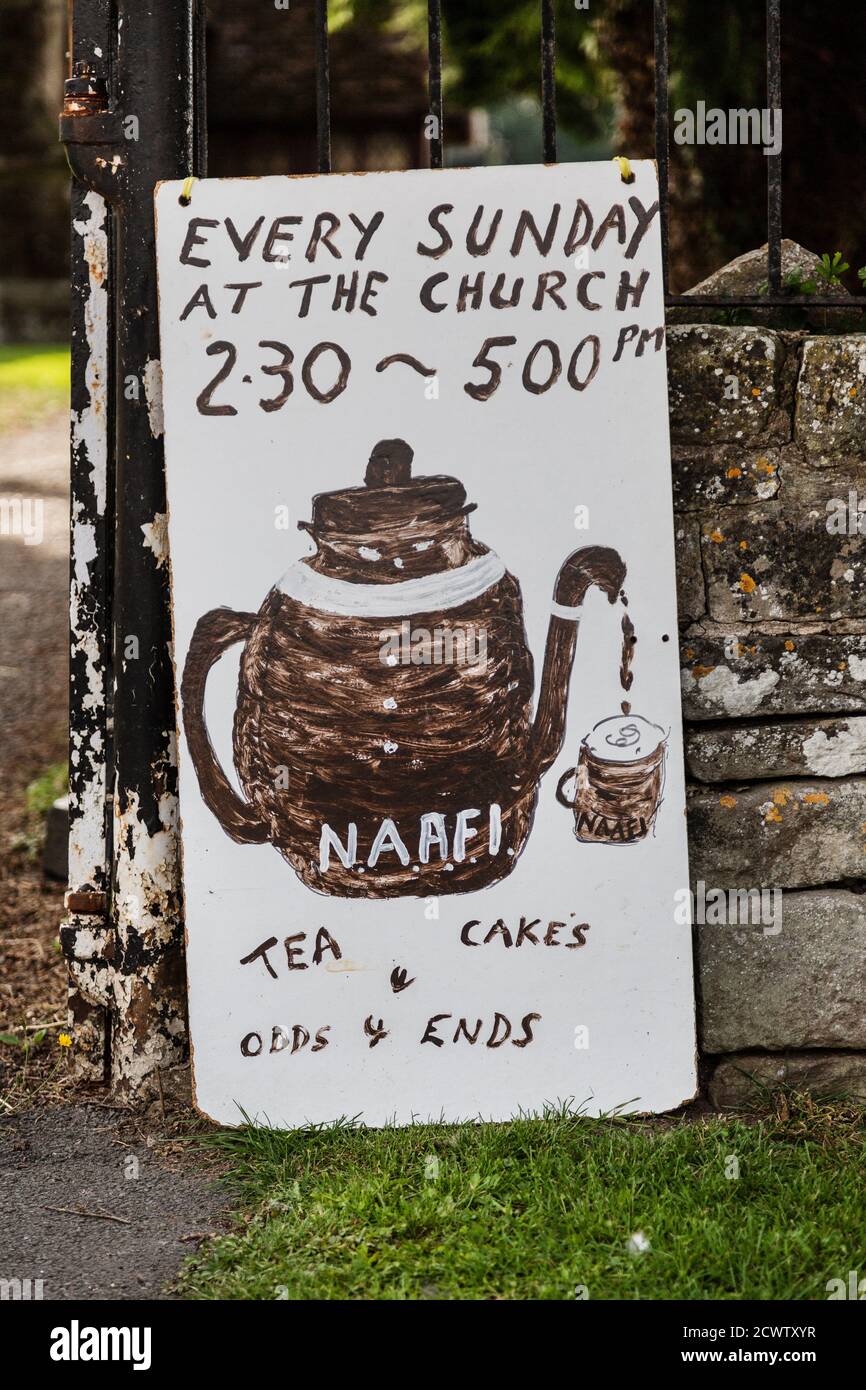 EVERY SUNDAY
AT THE CHURCH
2.30 ~ 500 PM
N.A.A.F.I.
NAAFI
TEA & CAKE'S
ODDS & ENDS
a
alamy
Image ID: 2CWTXYR
www.alamy.com